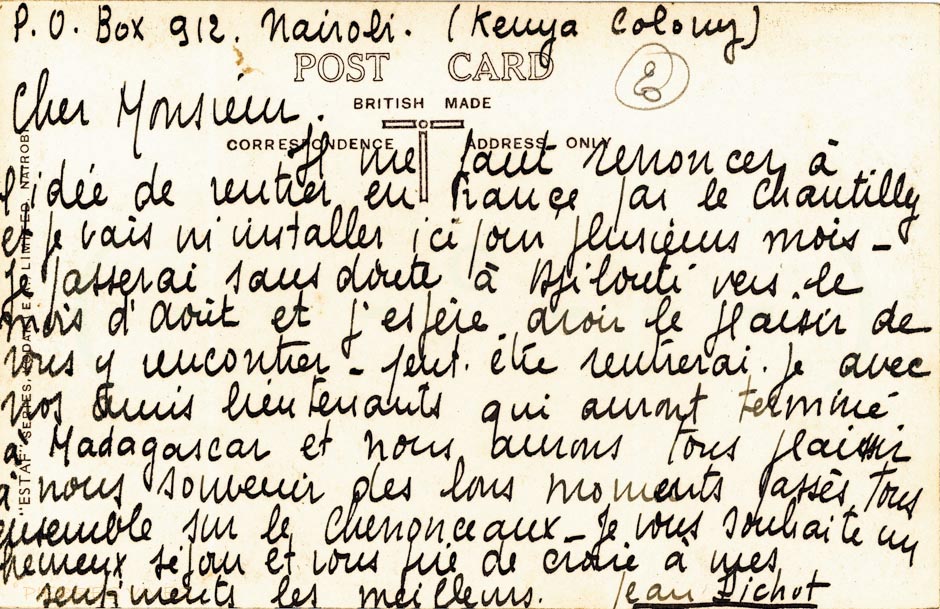 P.O. Box 912. Nairobi. (Kenya Colony)
POST CARD
BRITISH MADE
CORRESPONDENCE ADDRESS ONLY
Cher Monsieur.
Il me faut renoncer à
l'idée de rentrer en France par le Chantilly
et je vais m'installer ici pour plusieurs mois -
Je passerai sans doute à Djibouti vers le
mois d'Août et j'espère avoir le plaisir de
vous y rencontrer - peut-être rentrerai-je avec
nos amis lieutenants qui auront terminé
à Madagascar et nous aurons tous plaisir
à nous souvenir des bons moments passés tous
ensemble sur le Chenonceaux - Je vous souhaite un
heureux séjour et vous prie de croire à mes
sentiments les meilleurs. Jean
"ESTAF" SERIES, LIMITED NAIROBI